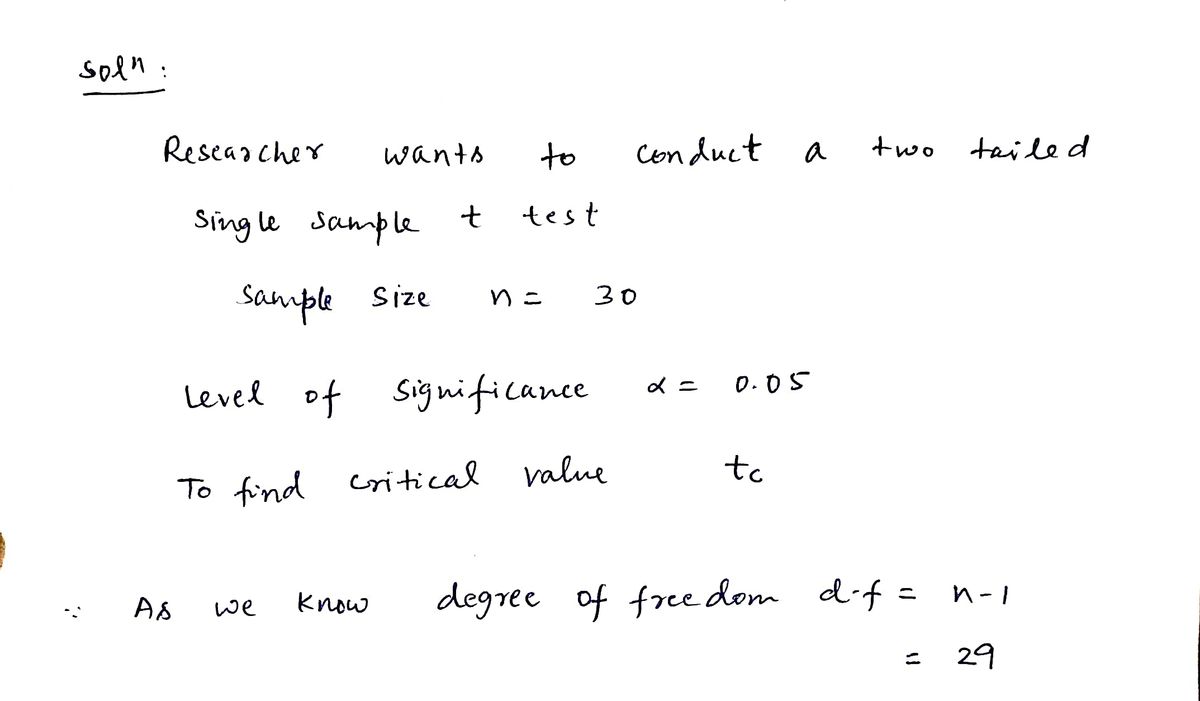 soln :
Researcher wants to conduct a two tailed
Single sample t test
Sample size n = 30
Level of significance α = 0.05
To find critical value tc
∵ As we know degree of freedom d.f = n-1
= 29